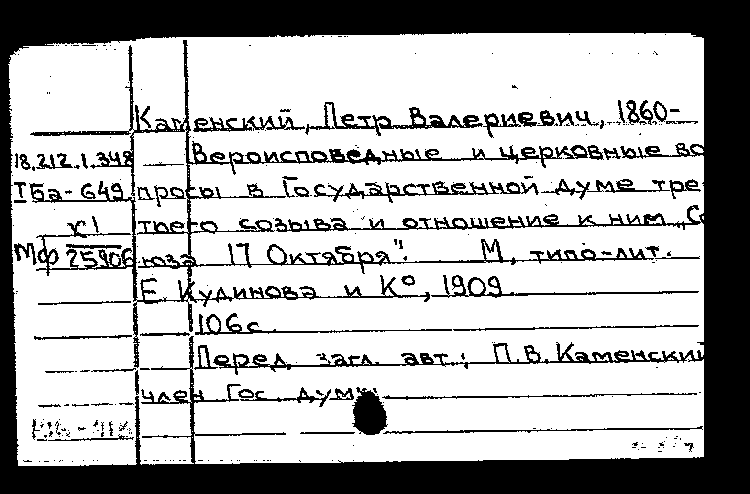 Каменский, Петр Валериевич, 1860-
18.212.1.348 Вероисповедные и церковные во
IБа-649 просы в Государственной думе тре
х1 тьего созыва и отношение к ним „Со
Мф 25906 юза 17 Октября". М, типо-лит.
Е. Кудинова и К°, 1909.
106 с.
Перед загл. авт.: П.В. Каменский
член Гос. думы